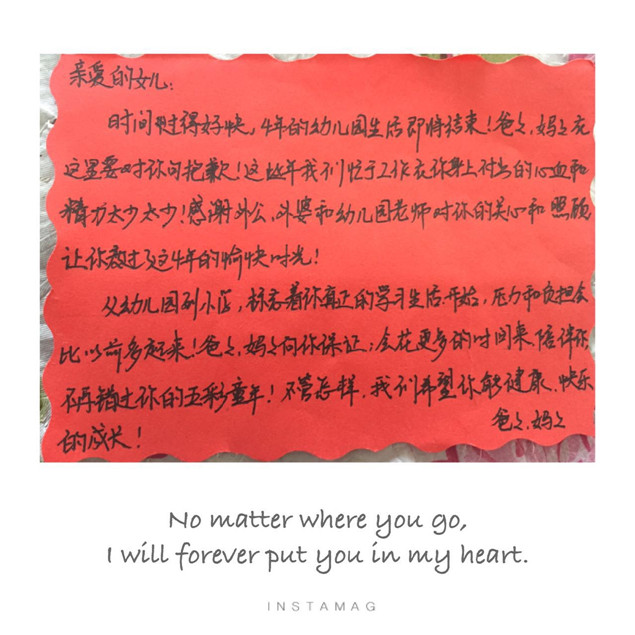 亲爱的女儿:
时间过得好快,4年的幼儿园生活即将结束!爸爸、妈妈在
这里要对你句抱歉!这些年我们忙于工作在你身上付出的心血和
精力太少太少!感谢外公、外婆和幼儿园老师对你的关心和照顾,
让你度过了这4年的愉快时光!
从幼儿园到小学,标志着你真正的学习生活开始,压力和负担会
比以前多起来!爸爸、妈妈向你保证:会花更多的时间来陪伴你
不再错过你的五彩童年!不管怎样,我们希望你能健康、快乐
的成长!
爸爸、妈妈
No matter where you go,
I will forever put you in my heart.
INSTAMAG